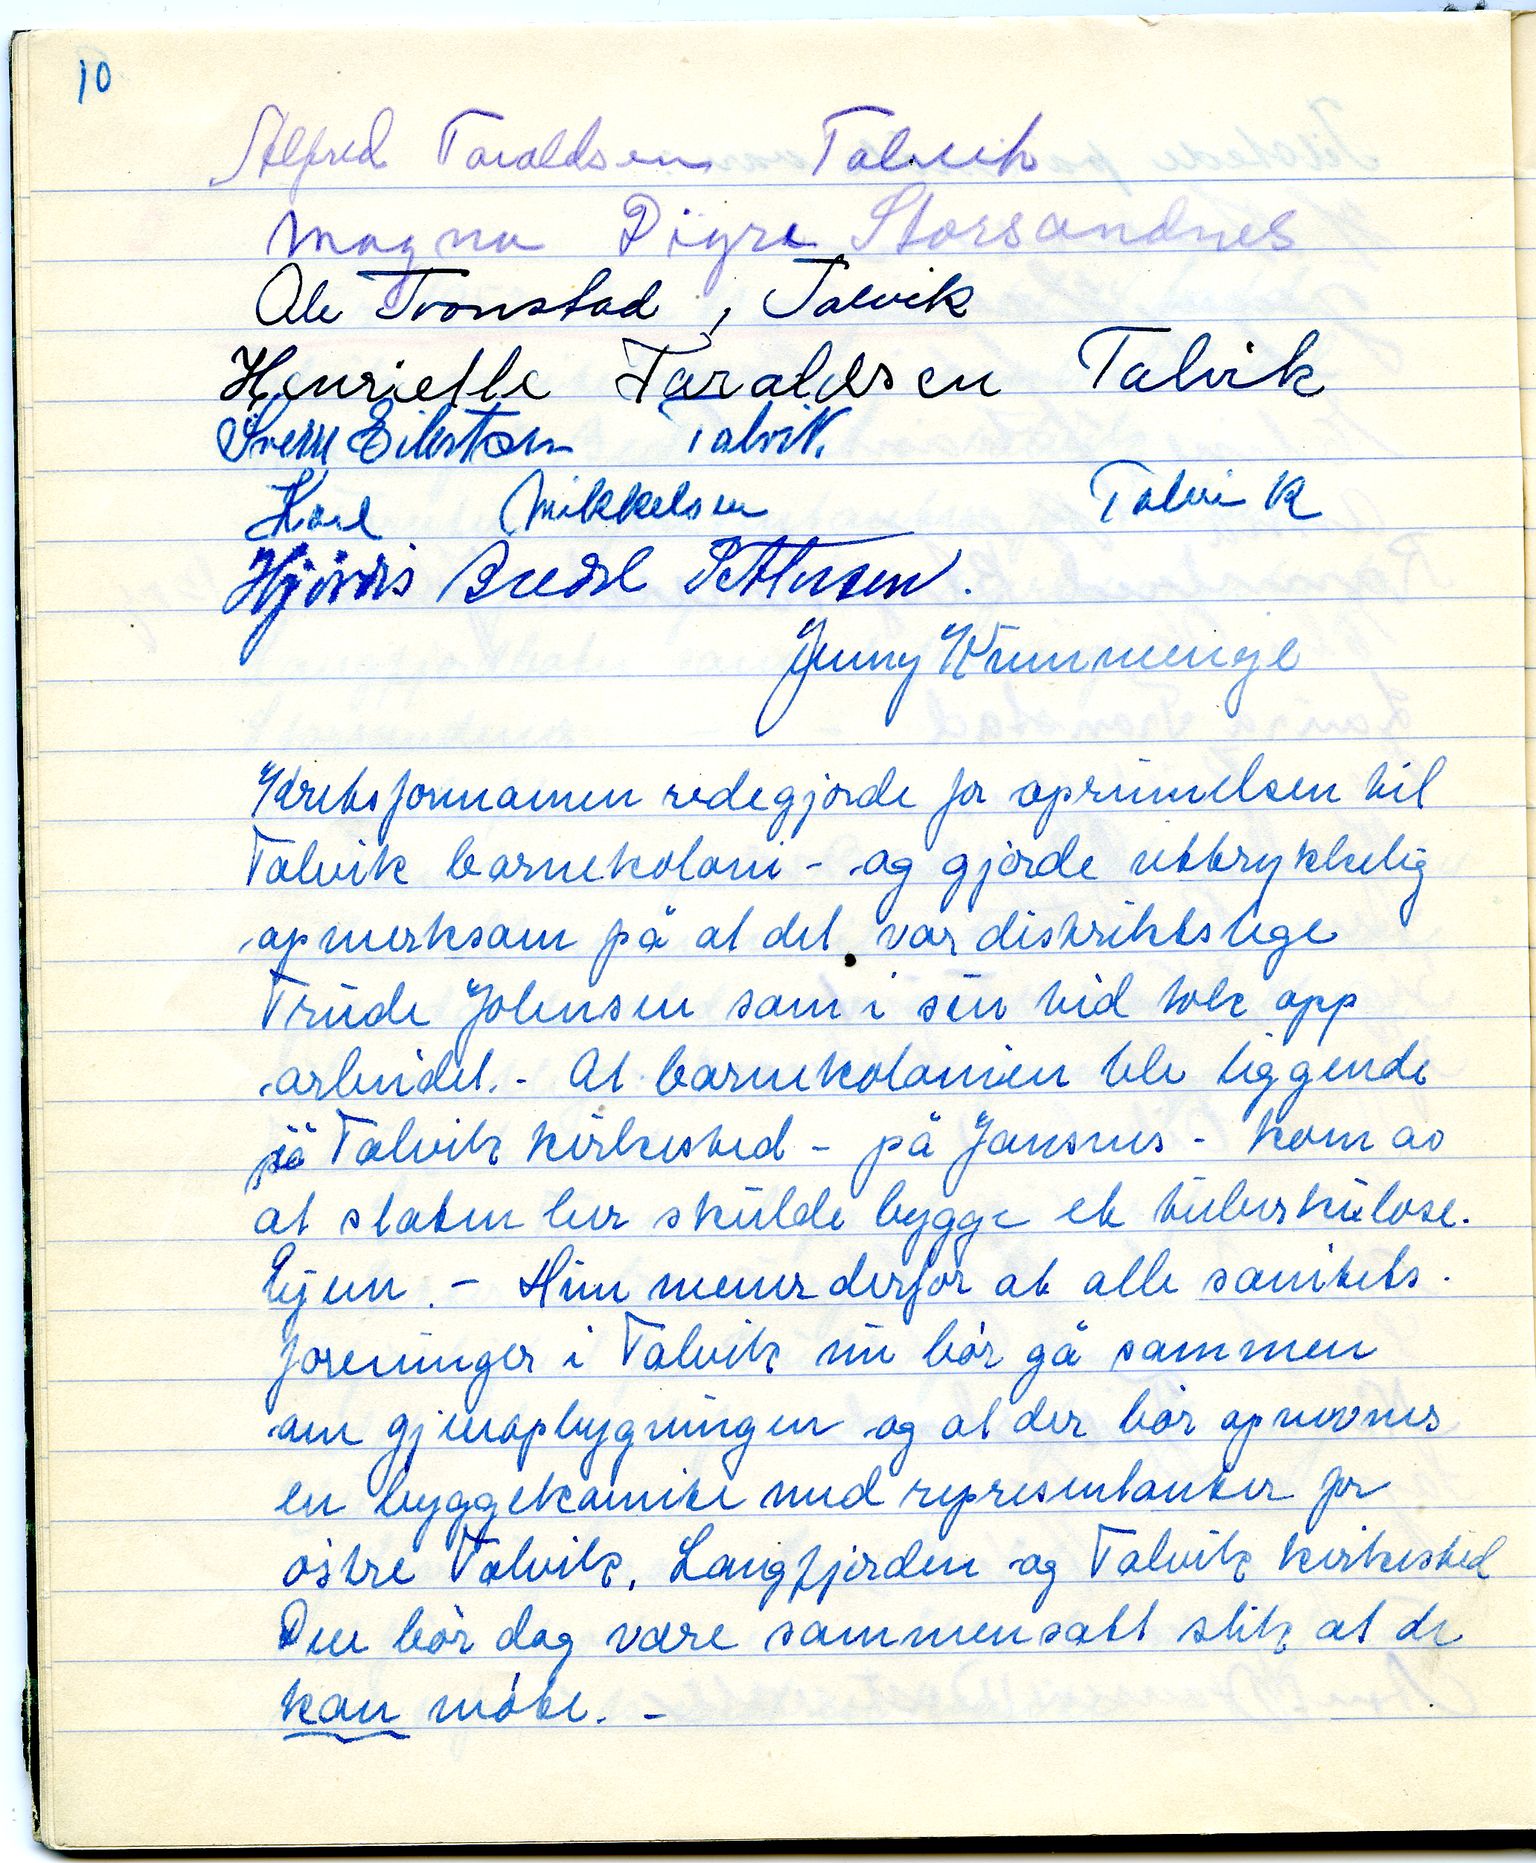 10
Alfred Taraldsen Talvik
Magna Digre Storsandnes
Ole Tronstad, Talvik
Henriette Taraldsen Talvik
Sverre Eilertsen Talvik.
Karl Mikkelsen Talvik
Hjørdis Bredal Pettersen.
Jenny Wimmenge
Kretsformannen redegjorde for oprinnelsen til
Talvik barnekoloni - og gjorde uttrykkelig
opmerksom på at det var distriktslege
Trude Johnsen som i sin tid tok opp
arbeidet. - At barnekolonien ble liggende
på Talvik kirkested - på Jansnes - kom av
at staten her skulde bygge et tuberkulose-
hjem. - Hun mener derfor at alle sanitets-
foreninger i Talvik nu bør gå sammen
om gjenopbygningen og at der bør opnevnes
en byggekomite med representanter for
østre Talvik, Langfjorden og Talvik kirkested
Den bør dog være sammensatt slik at de
kan møte. -